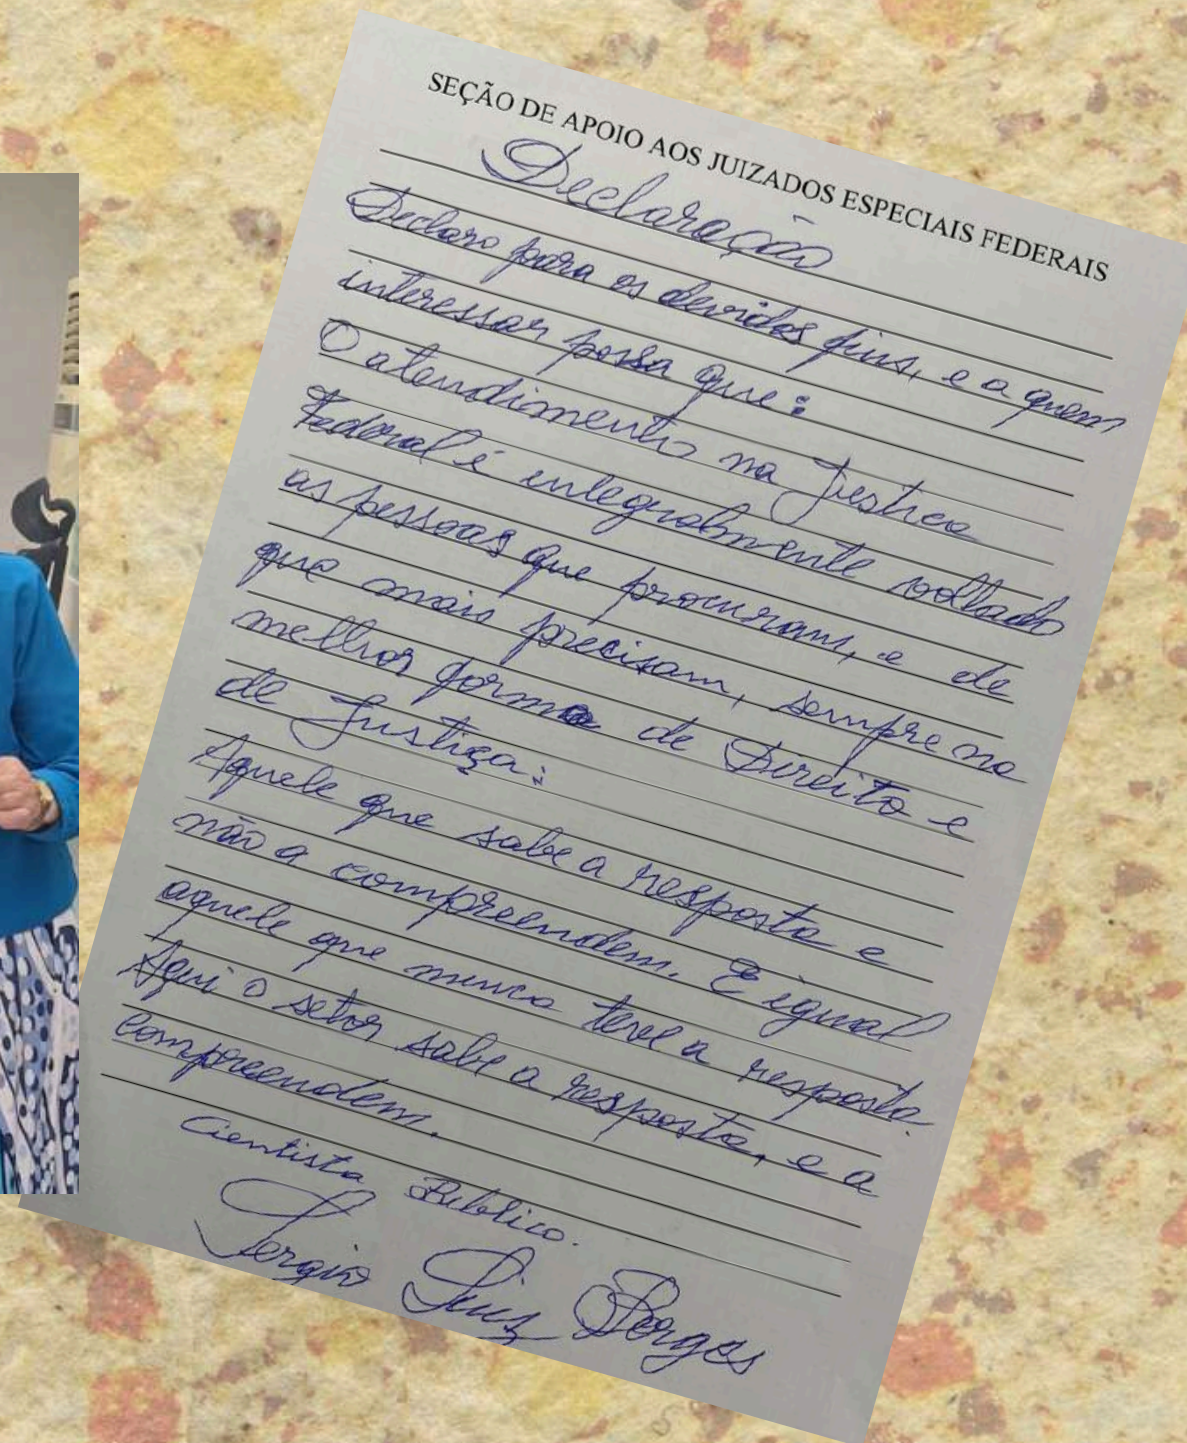 SEÇÃO DE APOIO AOS JUIZADOS ESPECIAIS FEDERAIS
Declaração
Declaro para os devidos fins, e a quem
interessar possa que:
O atendimento na Justica
Federal é integralmente voltado
as pessoas que procuram, e de
que mais precisam, sempre na
melhor forma de Direito e
de Justiça:
Aquele que sabe a resposta e
não a compreendem. E igual
aquele que nunca teve a resposta.
Aqui o setor sabe a resposta, e a
compreendem.
Cientista Bíblico.
Sergio Luiz Borges